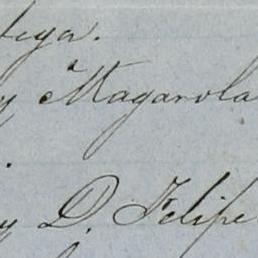 y Magarola
y D. Felipe